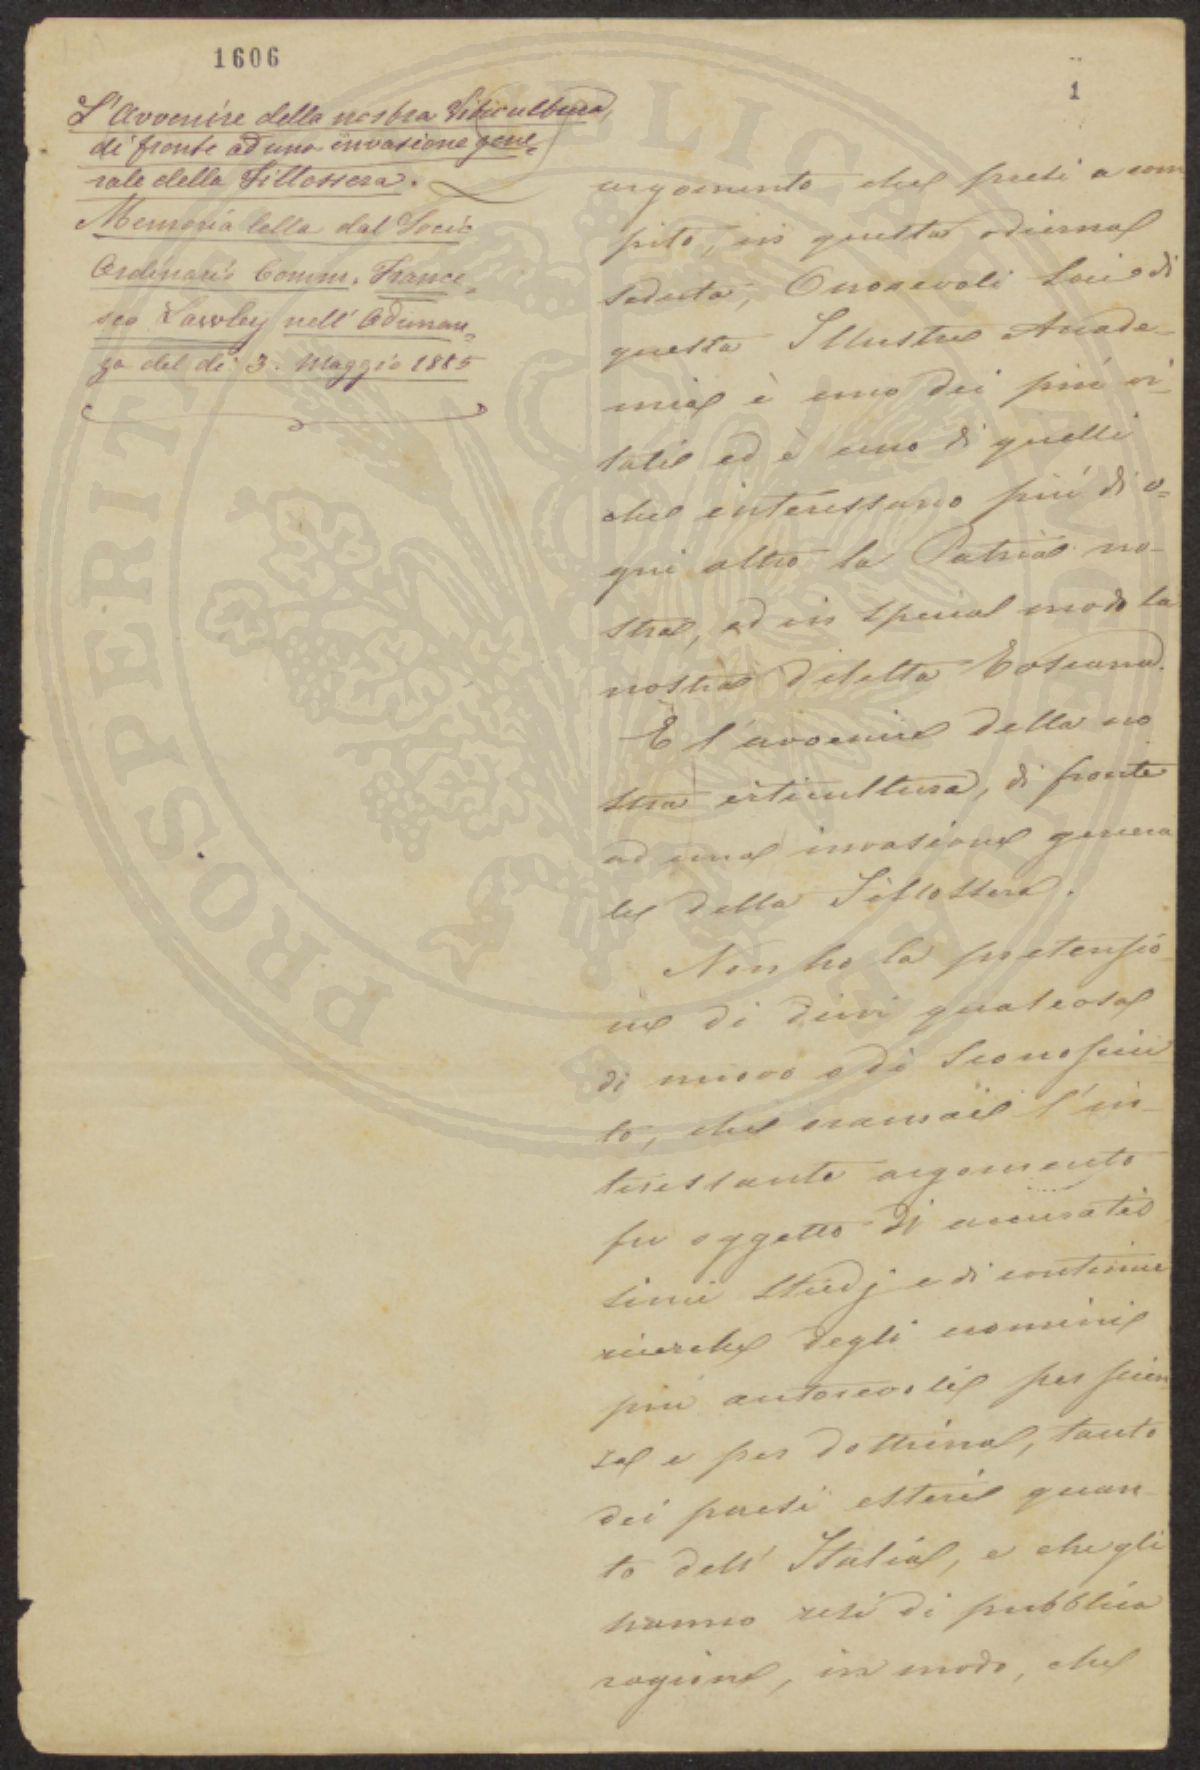 1606
1
L'Avvenire della nostra Viticultura,
di fronte ad una invasione gene=
rale della Fillossera.
Memoria letta dal Socio
Ordinario Comm. France=
sco Lawley nell' Adunan=
za del dì 3. Maggio 1885
argomento che presi a com
pito, in questa odierna
seduta, Onorevoli Socii di
questa Illustre Accade-
mia è uno dei piú vi-
tali ed è uno di quelli
che interessano piú di o=
gni altro la Patria no-
stra, ed in special modo la
nostra diletta Toscana.
È l'avvenire della no
stra viticultura, di fronte
ad una invasione genera
le della Fillossera.
Non ho la pretensio
ne di dirvi qualcosa
di nuovo o di sconosciu
to, che oramai l'in-
teressante argomento
fu oggetto di accuratis
simi studj e di continue
ricerche degli uomini
più autorevoli per scien
za e per dottrina, tanto
dei paesi esteri quan-
to dell' Italia, e che gli
hanno resi di pubblica
ragione, in modo, che
PROSPERITATI PUBLICAE AUGENDAE